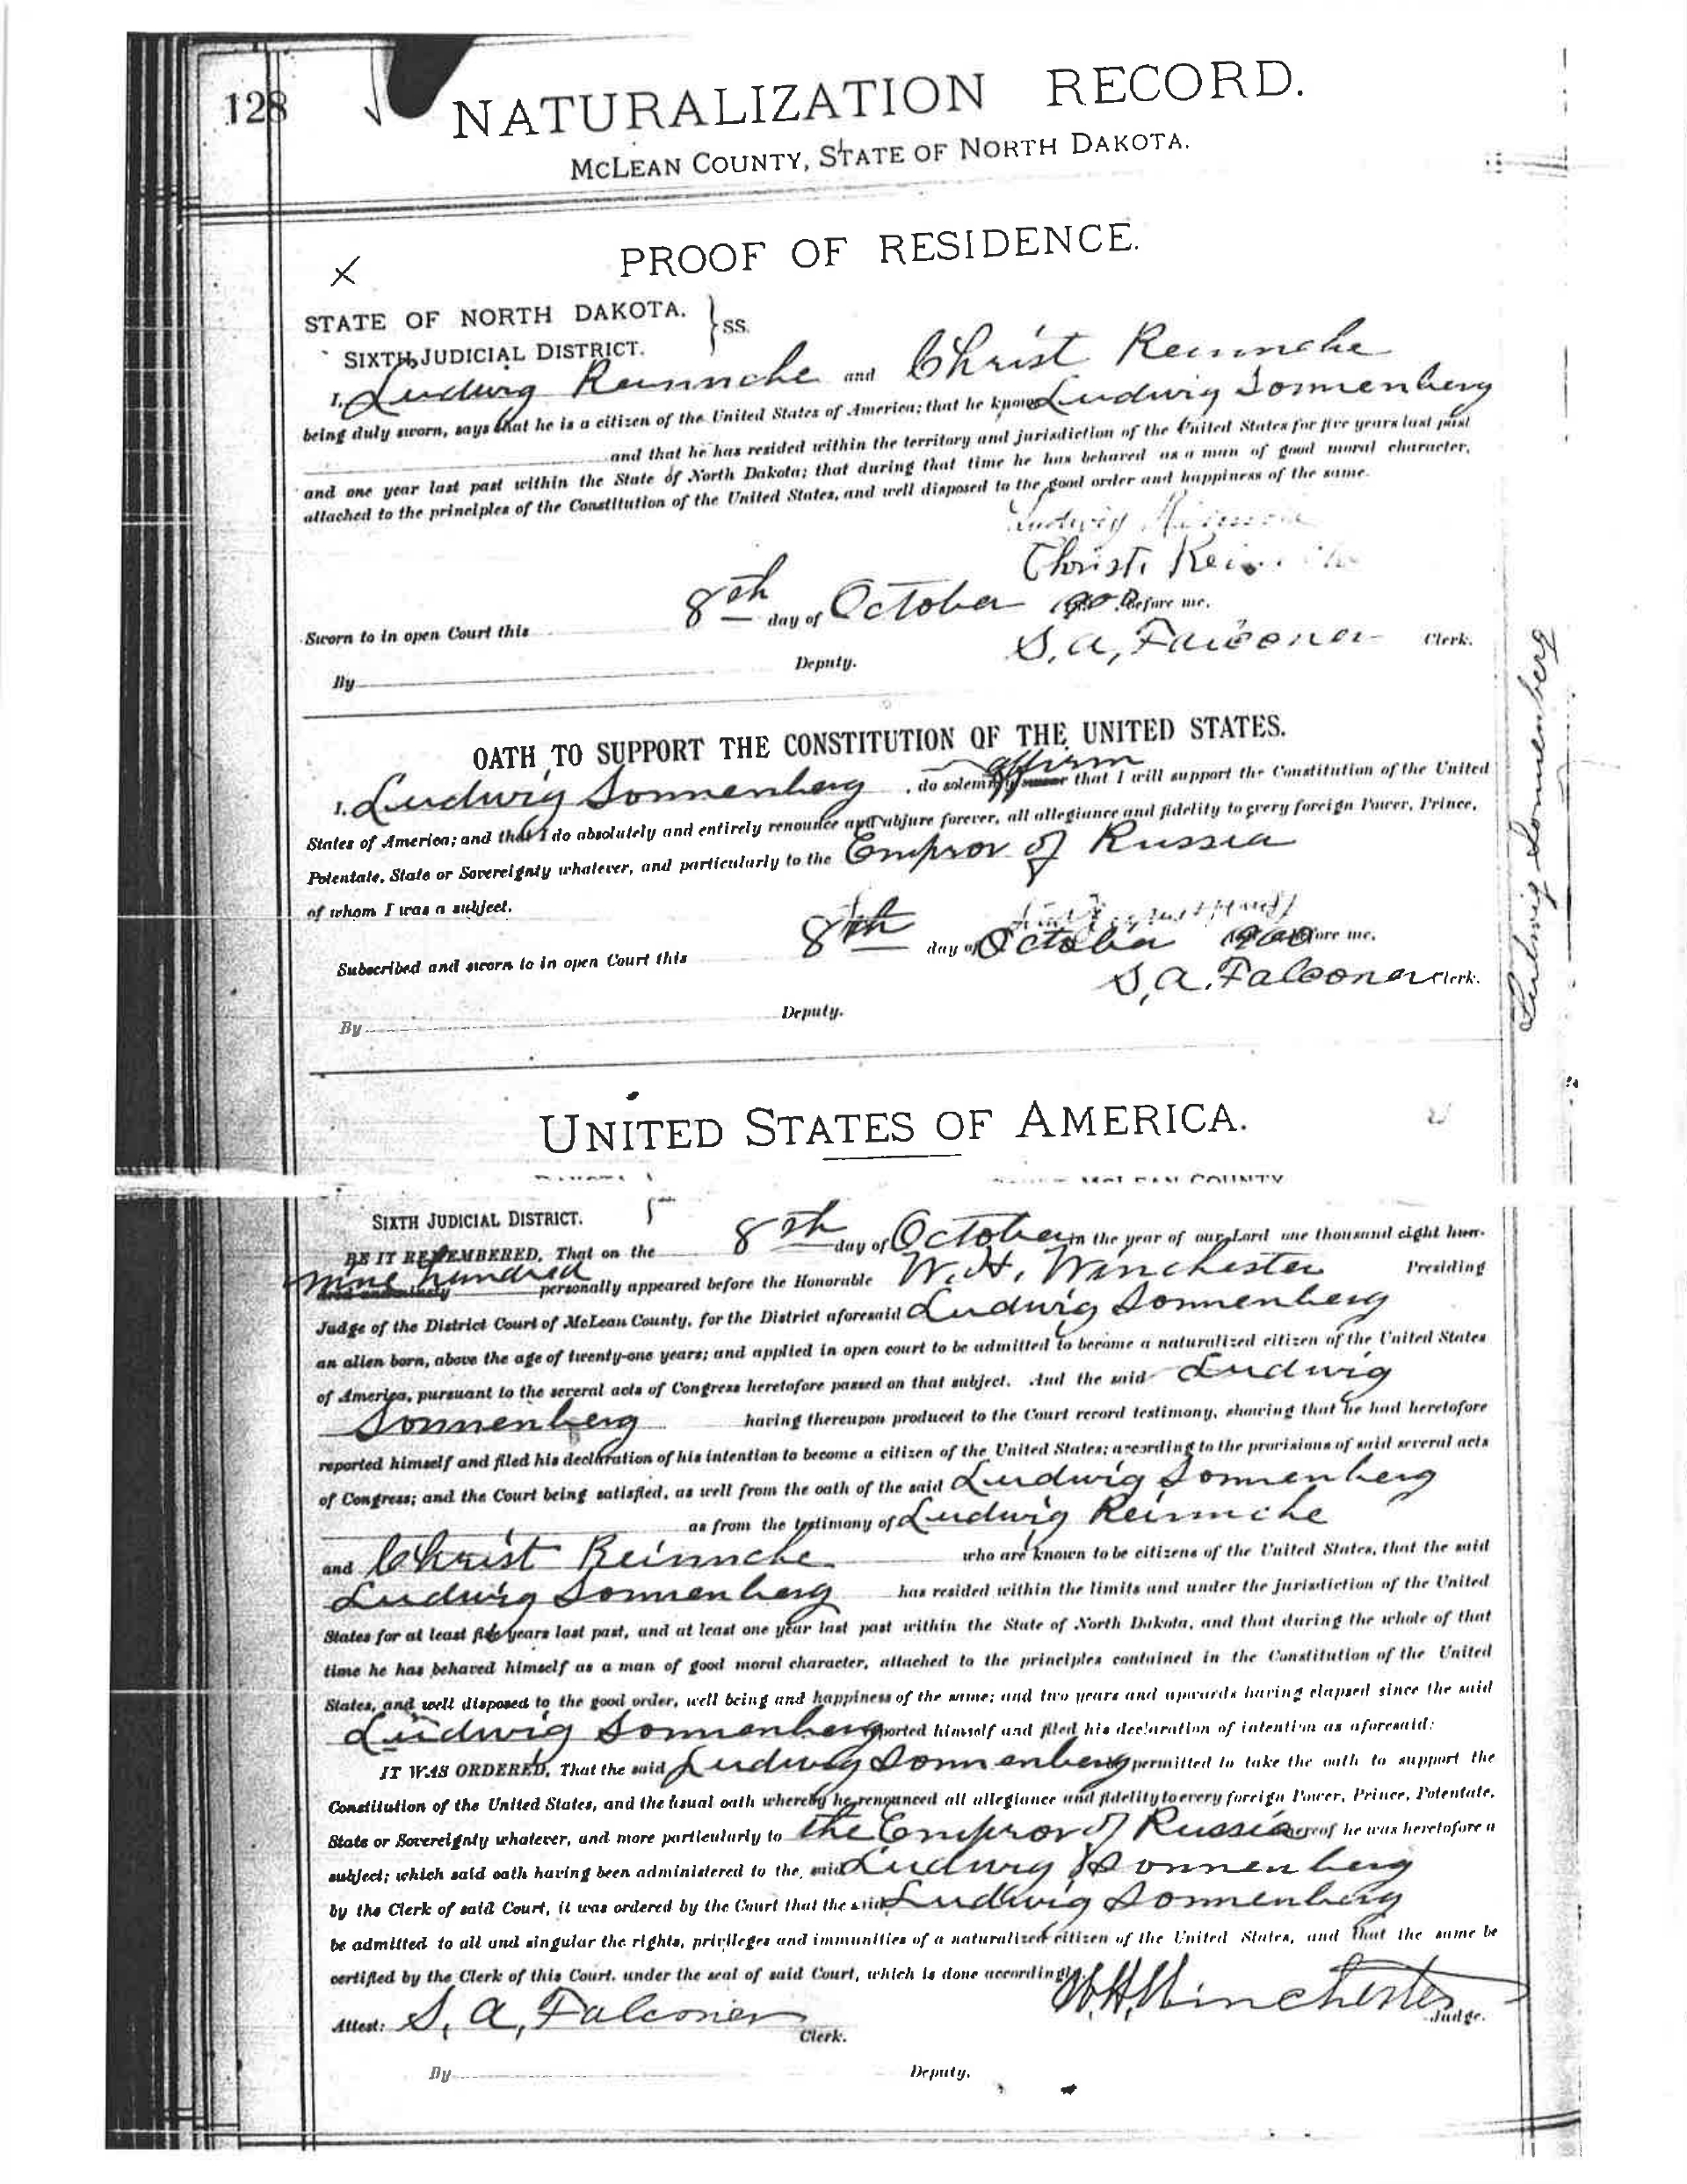 128
NATURALIZATION RECORD.
MCLEAN COUNTY, STATE OF NORTH DAKOTA.
PROOF OF RESIDENCE.
STATE OF NORTH DAKOTA. } SS.
SIXTH JUDICIAL DISTRICT.
I, Ludwig Reinnche and Christ Reinnche
being duly sworn, says that he is a citizen of the United States of America; that he knows Ludwig Sonnenberg
and that he has resided within the territory and jurisdiction of the United States for five years last past
and one year last past within the State of North Dakota; that during that time he has behaved as a man of good moral character,
attached to the principles of the Constitution of the United States, and well disposed to the good order and happiness of the same.
Ludwig
Christ
Sworn to in open Court this 8th day of October 1900 before me.
S. A. Falconer Clerk.
By Deputy.
OATH TO SUPPORT THE CONSTITUTION OF THE UNITED STATES.
affirm
I, Ludwig Sonnenberg, do solemnly swear that I will support the Constitution of the United
States of America; and that I do absolutely and entirely renounce and abjure forever, all allegiance and fidelity to every foreign Power, Prince,
Potentate, State or Sovereignty whatever, and particularly to the Empror of Russia
of whom I was a subject.
Subscribed and sworn to in open Court this 8th day of October 1900 before me.
S. A. Falconer Clerk.
By Deputy.
Ludwig Sonnenberg
UNITED STATES OF AMERICA.
MCLEAN COUNTY
SIXTH JUDICIAL DISTRICT.
BE IT REMEMBERED, That on the 8th day of October in the year of our Lord one thousand eight hun-
nine hundred
dred and ninety personally appeared before the Honorable W. H. Winchester Presiding
Judge of the District Court of McLean County, for the District aforesaid Ludwig Sonnenberg
an alien born, above the age of twenty-one years; and applied in open court to be admitted to become a naturalized citizen of the United States
of America, pursuant to the several acts of Congress heretofore passed on that subject. And the said Ludwig
Sonnenberg having thereupon produced to the Court record testimony, showing that he had heretofore
reported himself and filed his declaration of his intention to become a citizen of the United States; according to the provisions of said several acts
of Congress; and the Court being satisfied, as well from the oath of the said Ludwig Sonnenberg
as from the testimony of Ludwig Reinnche
and Christ Reinnche who are known to be citizens of the United States, that the said
Ludwig Sonnenberg has resided within the limits and under the jurisdiction of the United
States for at least five years last past, and at least one year last past within the State of North Dakota, and that during the whole of that
time he has behaved himself as a man of good moral character, attached to the principles contained in the Constitution of the United
States, and well disposed to the good order, well being and happiness of the same; and two years and upwards having elapsed since the said
Ludwig Sonnenberg reported himself and filed his declaration of intention as aforesaid:
IT WAS ORDERED, That the said Ludwig Sonnenberg permitted to take the oath to support the
Constitution of the United States, and the usual oath whereby he renounced all allegiance and fidelity to every foreign Power, Prince, Potentate,
State or Sovereignty whatever, and more particularly to the Empror of Russia whereof he was heretofore a
subject; which said oath having been administered to the said Ludwig Sonnenberg
by the Clerk of said Court, it was ordered by the Court that the said Ludwig Sonnenberg
be admitted to all and singular the rights, privileges and immunities of a naturalized citizen of the United States, and that the same be
certified by the Clerk of this Court, under the seal of said Court, which is done accordingly.
W. H. Winchester Judge.
Attest: S. A. Falconer Clerk.
By Deputy.